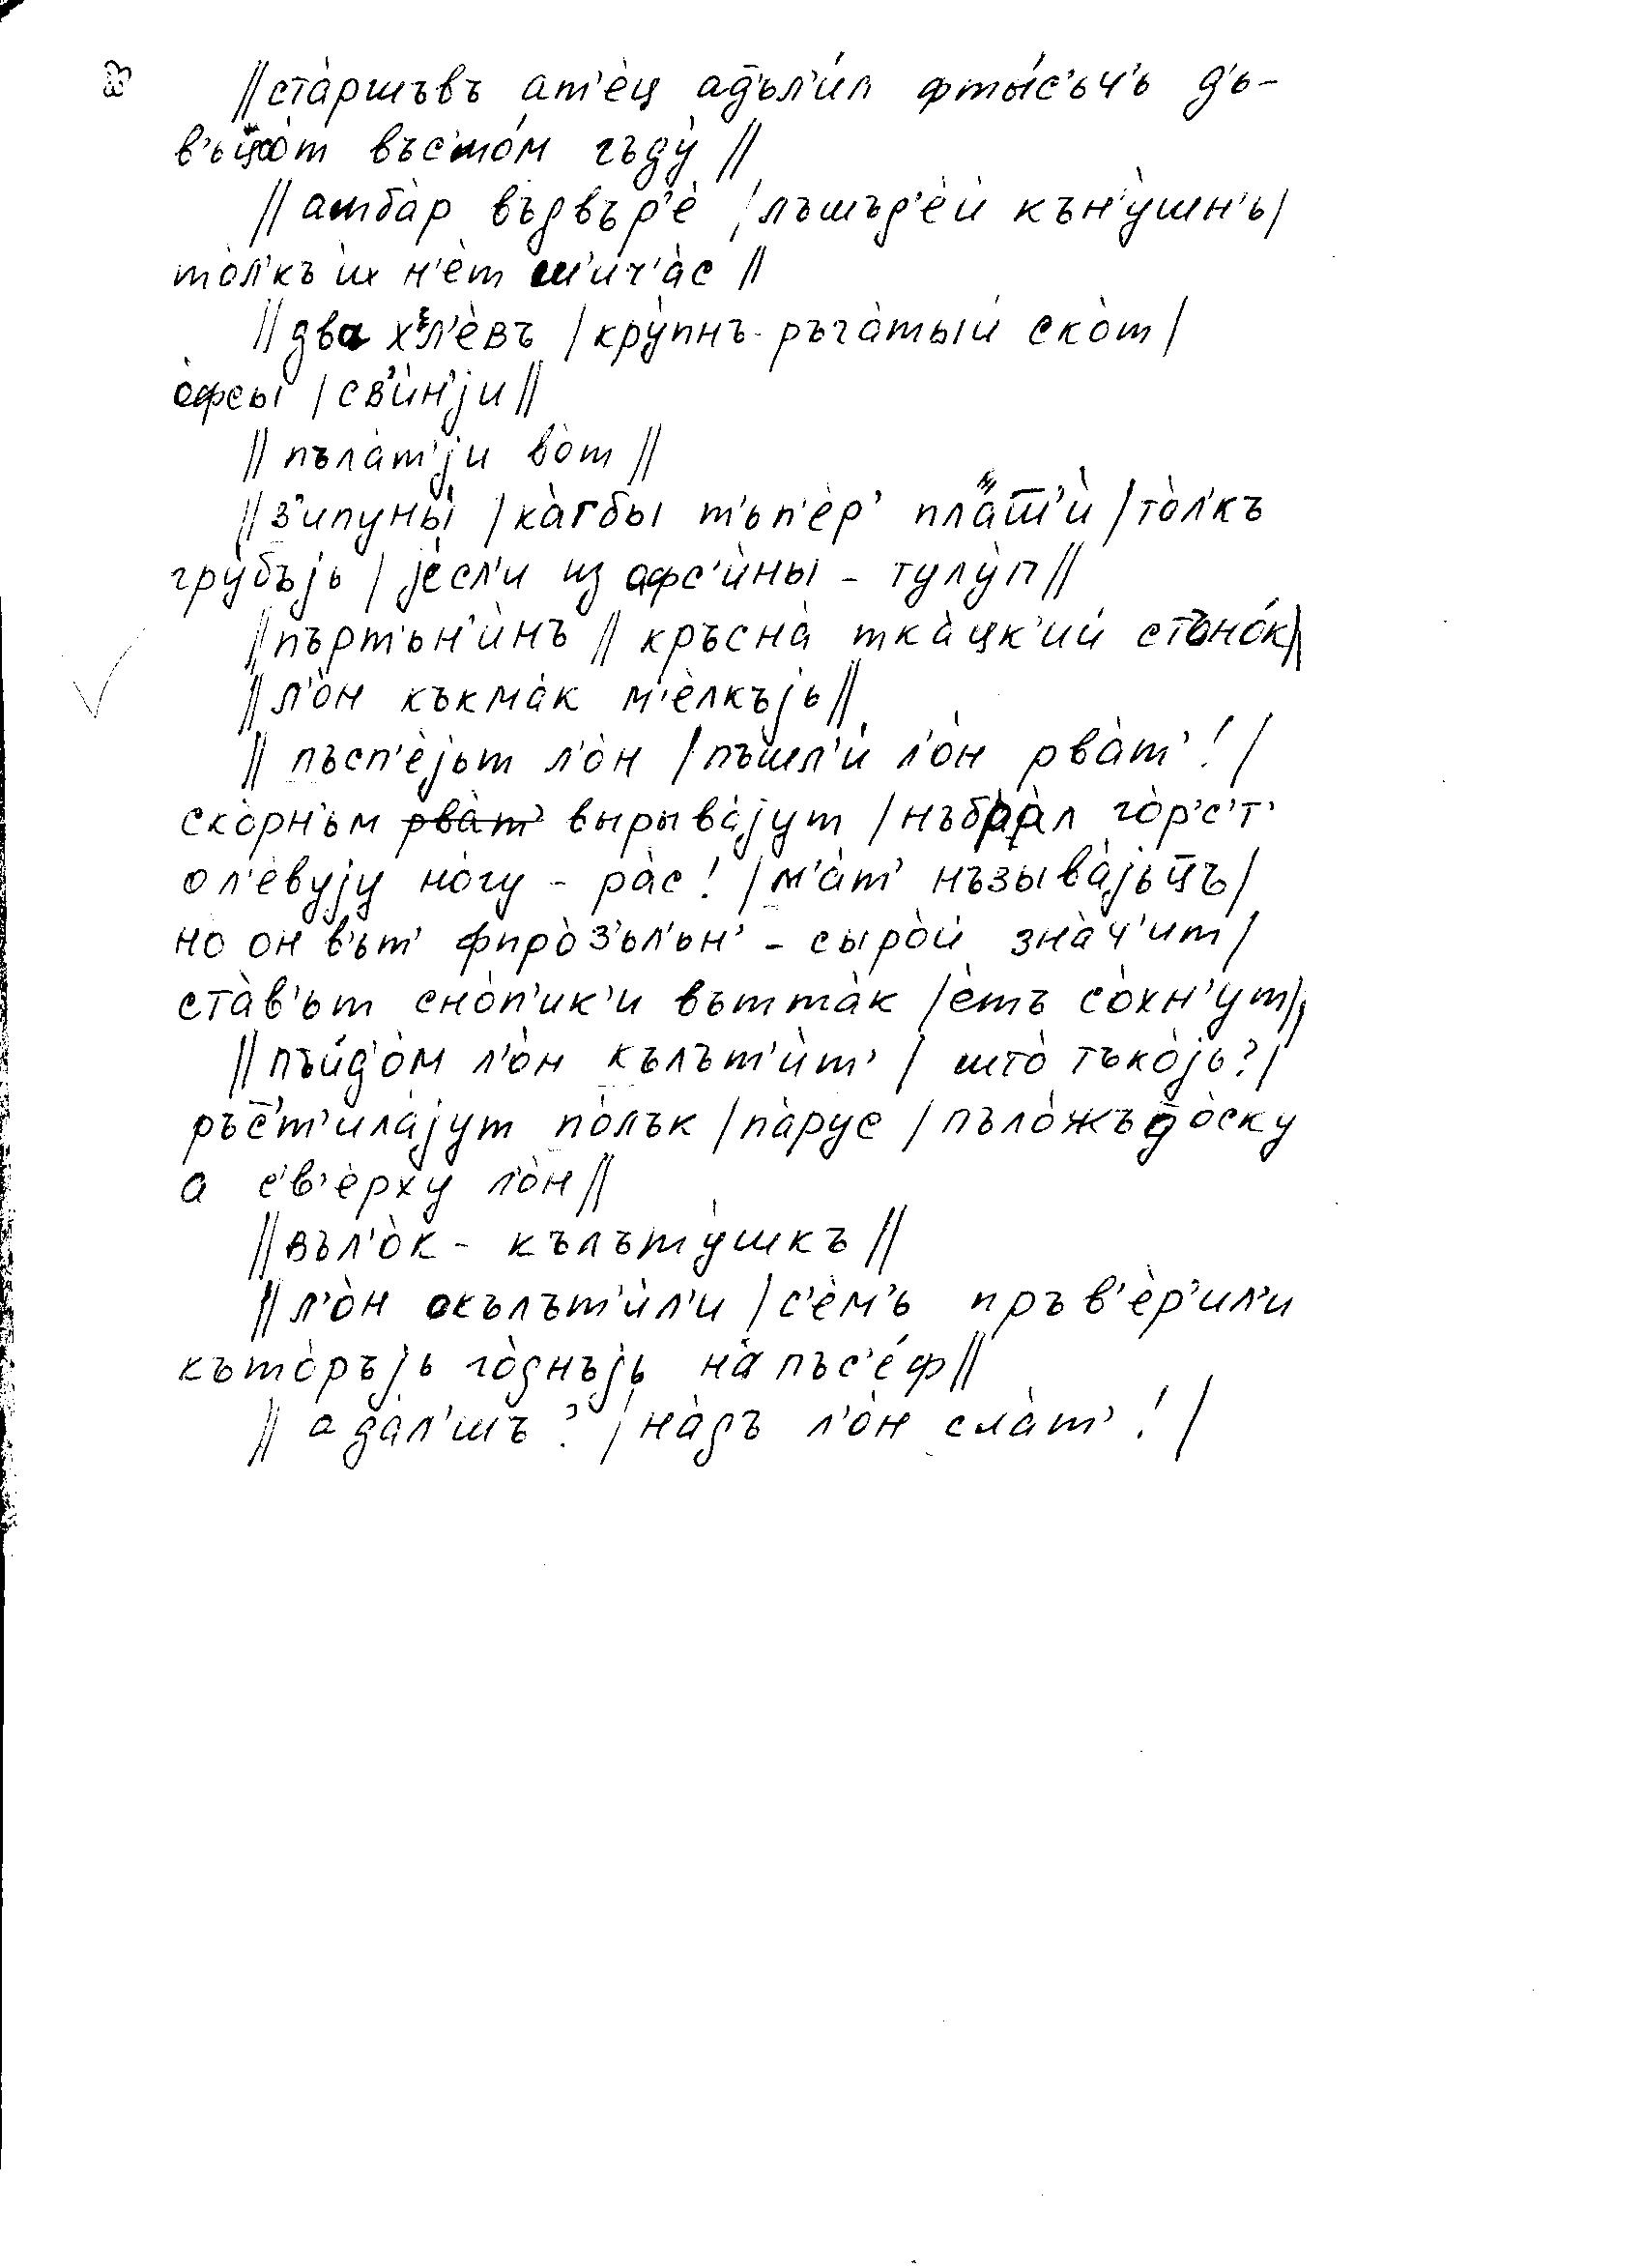 //ста̀ршъвъ ат'ѐц ад̅'ьл'и́л фты́с'ьч'ь д'ь-
в'ьцо̀т въс'мо́м гъду̀ //
// амба̀р вьдвър'ѐ / лъшъд'ѐй кън'у̀шн'ь /
то̀л'къ ѝх н'ѐт ш'ич'а̀с //
// два хл'ѐвъ / кру̀пнъ-ръга̀тый ско̀т /
о̀фсы / св'ѝн'jи //
// пъла̀т'jи во̀т //
// з'ипуны̀ / ка̀гбы т'ьп'ѐр' плат̅'ѝ / то̀л'къ
гру̀бъjь / jѐсл'и из афс'ѝны - тулу̀п //
// пърт'ьн'ѝнъ // кръсна̀ тка̀цк'ий стъно́к //
// л'о̀н къкма̀к м'ѐлкъjь //
// пъсп'ѐjьт л'о̀н / пъшл'ѝ л'о̀н рва̀т'! /
ско̀рн'ьм рва̀т' вырыва̀jут / нъбра̀л го̀р'с'т'
о л'ѐвуjу но̀гу - ра̀с! / м'а̀т' нъзыва̀jьц̅ъ /
но он в'ьт' фпро̀з'ьл'ьн' - сыро̀й зна̀ч'ит /
ста̀в'ьт сно̀п'ик'и вътта̀к / ѐтъ со̀хн'ут //
// пъйд'о̀м л'о̀н кълът'ѝт' / што̀ тъко̀jь? /
ръс'т'ила̀jут по̀лък / па̀рус / пъло̀жъ до̀ску
а с'в'ѐрху л'о̀н //
// въл'о̀к - кълъту̀шкъ //
// л'о̀н окълът'ѝл'и / с'ѐм'ь пръв'ѐр'ил'и
къто̀ръjь го̀днъjь на̀ пъс'е́ф //
// а да̀л'шъ? / на̀дъ л'о̀н сла̀т'! /